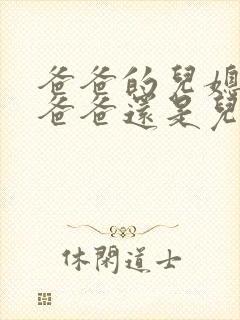 爸爸的兒媳
爸爸還是兒
休閑道士